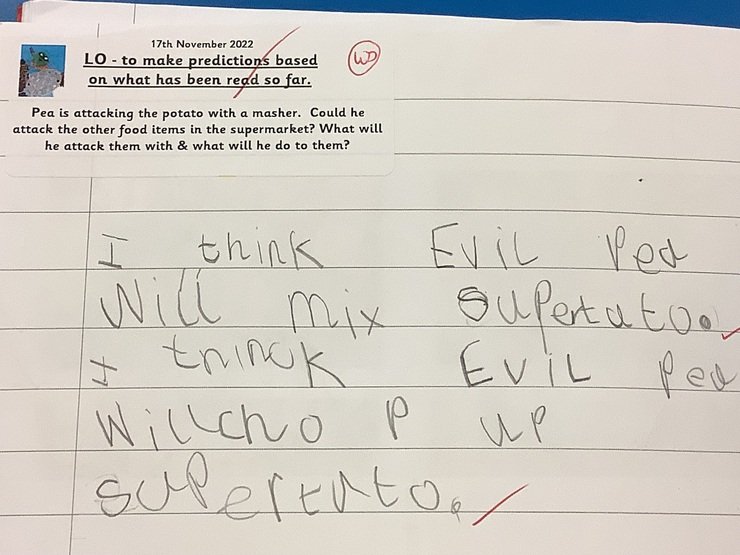 17th November 2022
LO - to make predictions based
on what has been read so far.
WD
Pea is attacking the potato with a masher. Could he
attack the other food items in the supermarket? What will
he attack them with & what will he do to them?
I think Evil Pea
Will mix Supertato.
I thinck Evil Pea
Will cho P up
supertato.